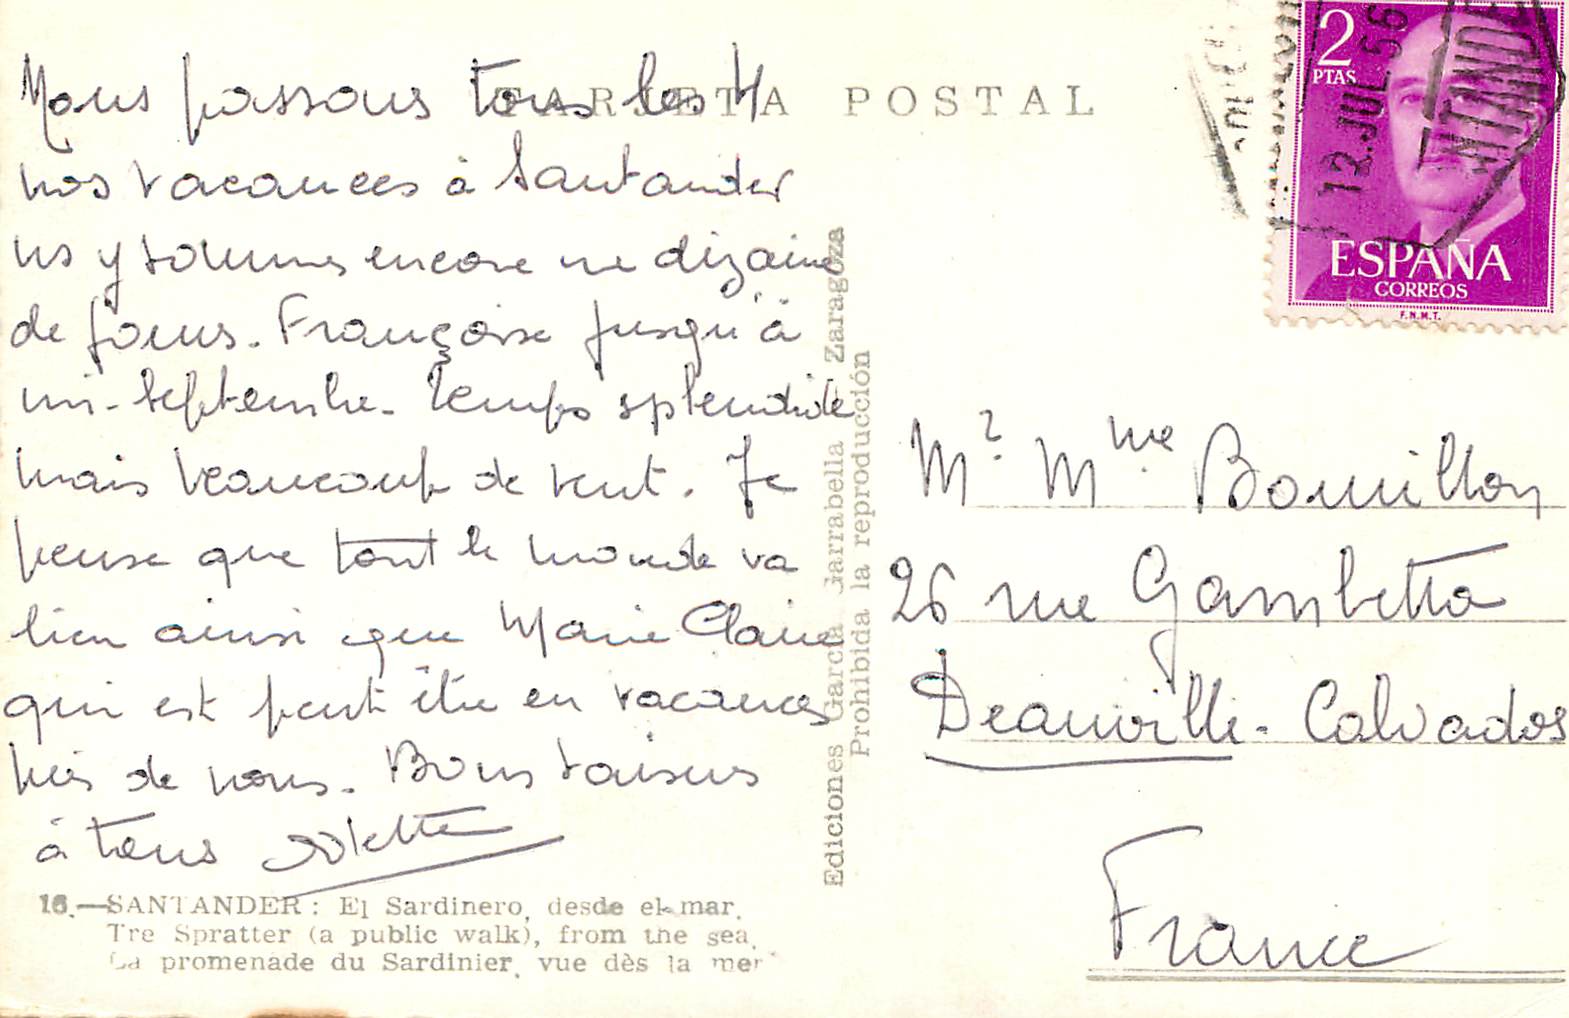 Nous passons tous les 4
nos vacances à Santander
ns y sommes encore une dizaine
de jours. Françoise jusqu'à
mi-septembre. Temps splendide
mais beaucoup de vent. Je
pense que tout le monde va
bien ainsi que Marie Claire
qui est peut être en vacances
près de vous. Bons baisers
à tous Odette
16.—SANTANDER: El Sardinero, desde el mar.
Tre Spratter (a public walk), from the sea.
La promenade du Sardinier, vue dès la mer
TARJETA POSTAL
Ediciones García Garrabella Zaragoza
Prohibida la reproducción
2
PTAS
13.JUL 56
ESPAÑA
CORREOS
F.N.M.T.
Mr. Mme Bouillon
26 rue Gambetta
Deauville - Calvados
France